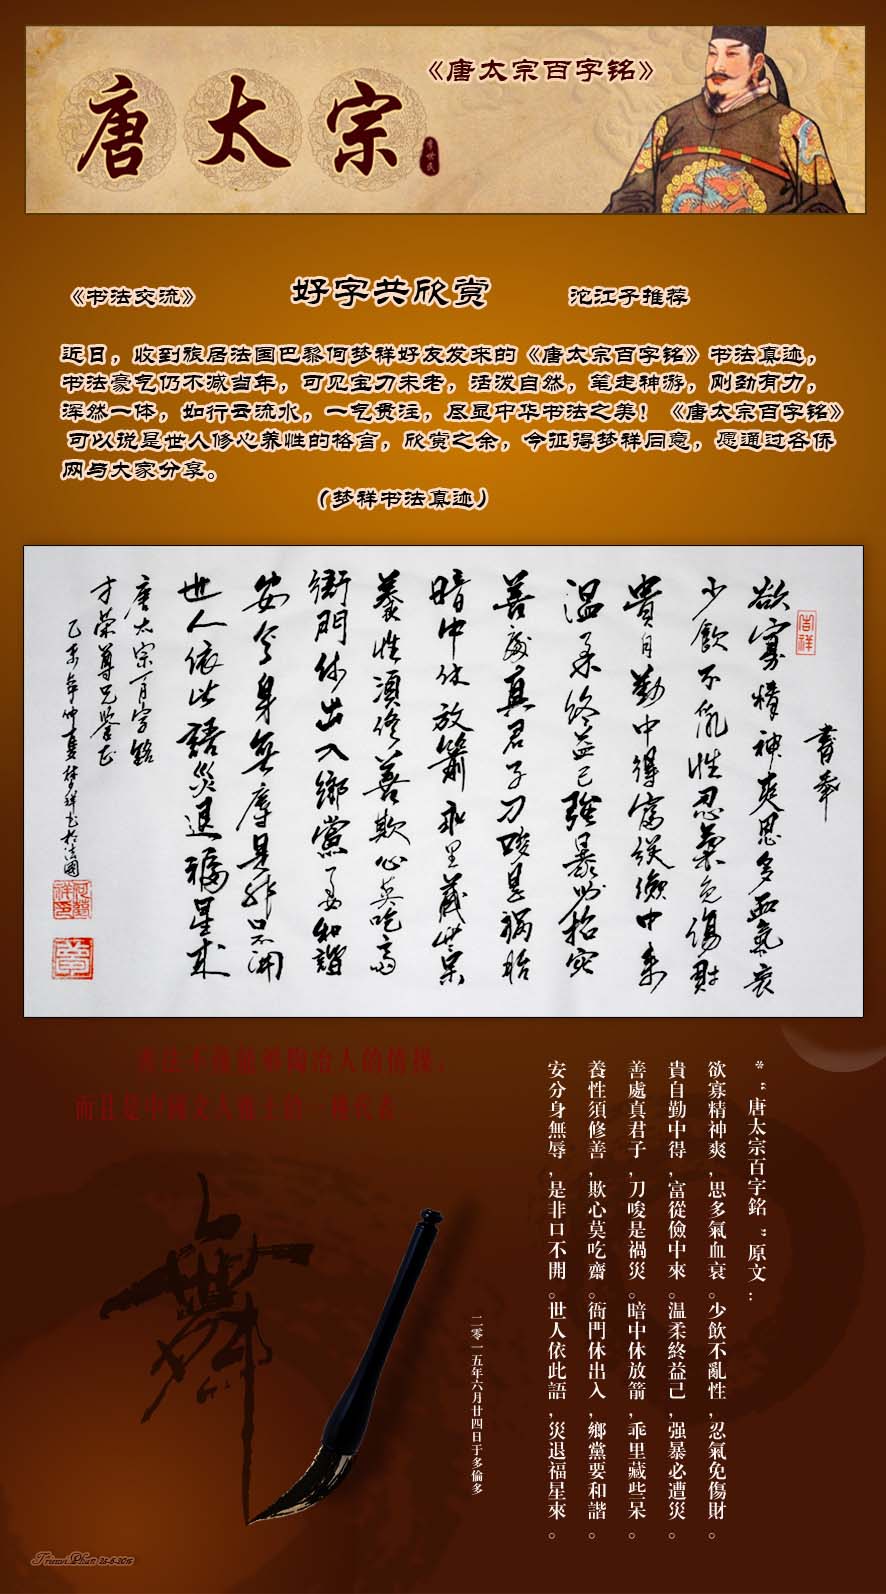 唐太宗
李世民
《唐太宗百字铭》
《书法交流》
好字共欣赏
沱江子推荐
近日，收到旅居法国巴黎何梦祥好友发来的《唐太宗百字铭》书法真迹，
书法豪气仍不减当年，可见宝刀未老，活泼自然，笔走神游，刚劲有力，
浑然一体，如行云流水，一气贯注，尽显中华书法之美！《唐太宗百字铭》
可以说是世人修心养性的格言，欣赏之余，今征得梦祥同意，愿通过各侨
网与大家分享。
（梦祥书法真迹）
吉祥
書奉
欲寡精神爽思多血氣衰
少飲不亂性忍氣免傷財
貴自勤中得富從儉中來
温柔終益己強暴必招灾
善處真君子刀唆是禍胎
暗中休放箭乖里藏些呆
養性須修善欺心莫吃齋
衙門休出入鄉黨要和諧
安分身無辱是非口不開
世人依此語災退福星來
唐太宗百字銘
才榮尊兄鉴正
乙未年仲夏梦祥书於法國
书法不僅能夠陶冶人的情操，
而且是中國文人雅士的一種代表
*“唐太宗百字銘”原文：
欲寡精神爽，思多氣血衰。少飲不亂性，忍氣免傷財。
貴自勤中得，富從儉中來。温柔終益己，强暴必遭災。
善處真君子，刀唆是禍災。暗中休放箭，乖里藏些呆。
養性須修善，欺心莫吃齋。衙門休出入，鄉黨要和諧。
安分身無辱，是非口不開。世人依此語，災退福星來。
二零一五年六月廿四日于多倫多
舞